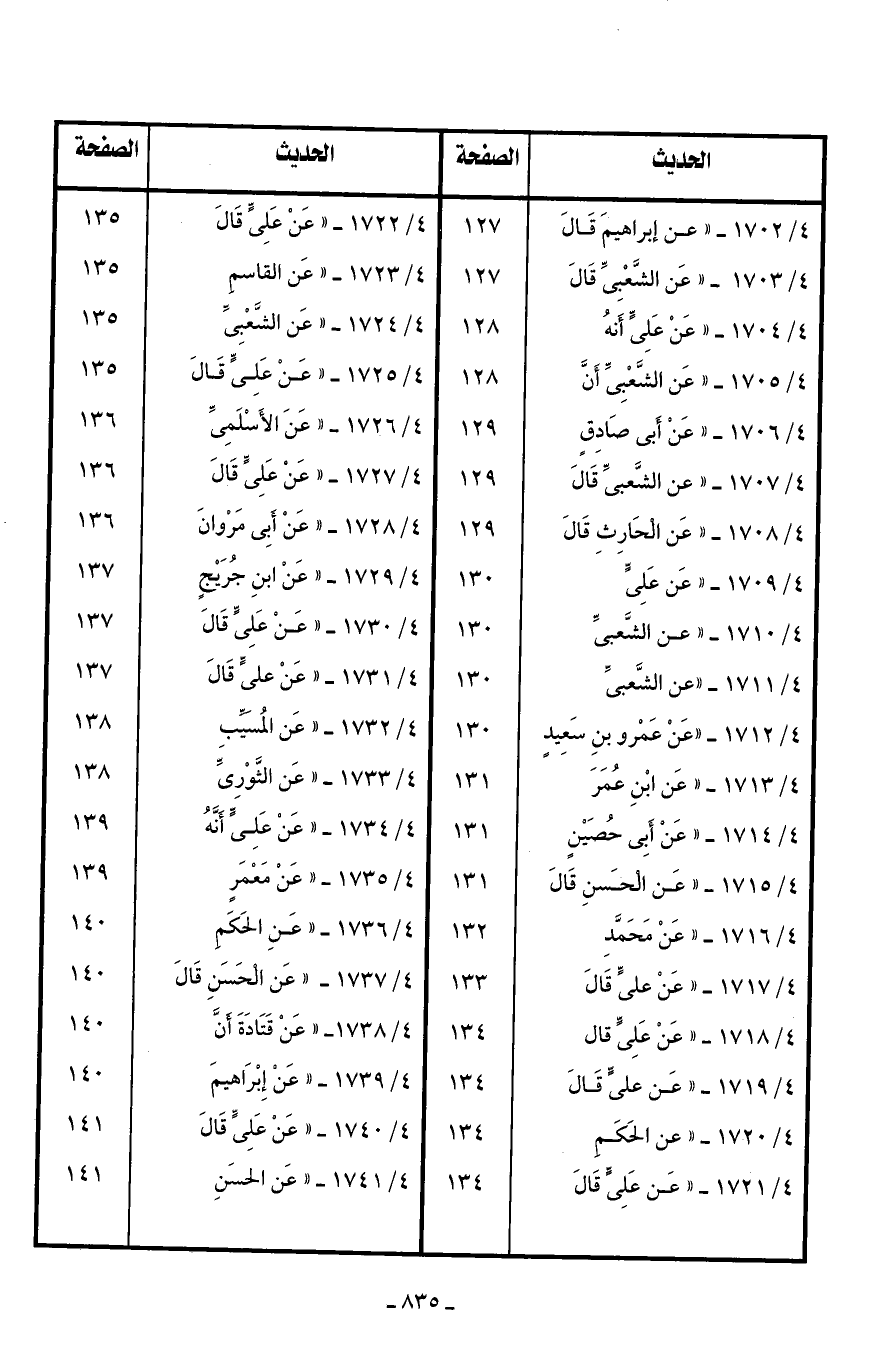 الحديث الصفحة الحديث الصفحة
٤/ ١٧٠٢ ـ « عـن إبراهيمَ قَـالَ ١٢٧ ٤/ ١٧٢٢ ـ « عَنْ عَلِىٍّ قَالَ ١٣٥
٤/ ١٧٠٣ ـ « عَن الشَّعْبِىِّ قَالَ ١٢٧ ٤/ ١٧٢٣ ـ « عَن القاسمِ ١٣٥
٤/ ١٧٠٤ ـ « عَنْ عَلِىٍّ أَنهُ ١٢٨ ٤/ ١٧٢٤ ـ « عَن الشَّعْبِىِّ ١٣٥
٤/ ١٧٠٥ ـ « عَن الشَّعْبِىِّ أَنَّ ١٢٨ ٤/ ١٧٢٥ ـ « عَـنْ عَلِـىٍّ قَـالَ ١٣٥
٤/ ١٧٠٦ ـ « عَنْ أَبى صَادِقٍ ١٢٩ ٤/ ١٧٢٦ ـ « عَنَ الأَسْلَمِىِّ ١٣٦
٤/ ١٧٠٧ ـ « عن الشَّعبىِّ قَالَ ١٢٩ ٤/ ١٧٢٧ ـ « عَنْ عَلِىٍّ قَالَ ١٣٦
٤/ ١٧٠٨ ـ « عَن الْحَارِثِ قَالَ ١٢٩ ٤/ ١٧٢٨ ـ « عَنْ أَبى مَرْوانَ ١٣٦
٤/ ١٧٠٩ ـ « عَن عَلِىٍّ ١٣٠ ٤/ ١٧٢٩ ـ « عَنْ ابنِ جُرَيْجٍ ١٣٧
٤/ ١٧١٠ ـ « عـن الشَّعبىِّ ١٣٠ ٤/ ١٧٣٠ ـ « عَـنْ عَلِىٍّ قَالَ ١٣٧
٤/ ١٧١١ ـ «عن الشَّعبىِّ ١٣٠ ٤/ ١٧٣١ ـ « عَنْ علىٍّ قَالَ ١٣٧
٤/ ١٧١٢ ـ «عَنْ عَمْرو بنِ سَعِيدٍ ١٣٠ ٤/ ١٧٣٢ ـ « عَن المُسَيِّبِ ١٣٨
٤/ ١٧١٣ ـ « عَن ابْنِ عُمَرَ ١٣١ ٤/ ١٧٣٣ ـ « عَن الثَّوْرِىِّ ١٣٨
٤/ ١٧١٤ ـ « عَنْ أَبى حُصَيْنٍ ١٣١ ٤/ ١٧٣٤ ـ « عَنْ عَلِـىٍّ أَنَّهُ ١٣٩
٤/ ١٧١٥ ـ « عَـن الْحَـسنِ قَالَ ١٣١ ٤/ ١٧٣٥ ـ « عَنْ مَعْمَرٍ ١٣٩
٤/ ١٧١٦ ـ « عَنْ مَحَمَّدِ ١٣٢ ٤/ ١٧٣٦ ـ « عَـنِ الحَكَمِ ١٤٠
٤/ ١٧١٧ ـ « عَنْ علىٍّ قَالَ ١٣٣ ٤/ ١٧٣٧ ـ « عَن الْحَسَنِ قَالَ ١٤٠
٤/ ١٧١٨ ـ « عَنْ عَلِىٍّ قال ١٣٤ ٤/ ١٧٣٨ـ « عَنْ قَتَادَةَ أَنَّ ١٤٠
٤/ ١٧١٩ ـ « عَـن علىٍّ قَـالَ ١٣٤ ٤/ ١٧٣٩ ـ « عَنْ إِبْرَاهيمَ ١٤٠
٤/ ١٧٢٠ ـ « عن الحَكَـمِ ١٣٤ ٤/ ١٧٤٠ ـ « عَنْ عَلِىٍّ قَالَ ١٤١
٤/ ١٧٢١ ـ « عَـن عَلِىٍّ قَالَ ١٣٤ ٤/ ١٧٤١ ـ « عَن الحسَنِ ١٤١
ـ ٨٣٥ ـ